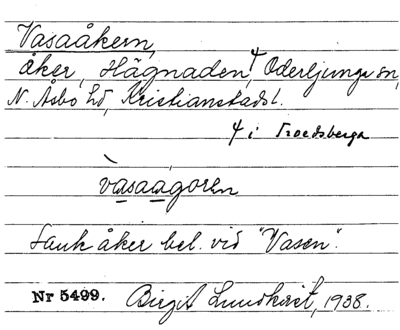 Vasaåkern,
åker, Hägnaden,⁴ Oderljunga sn,
N. Åsbo hd, Kristianstads l.
4 i Troedsberga
vàsaagoren
Sank åker bel. vid "Vasen".
Nr 5499. Birgit Lundkvist, 1938.